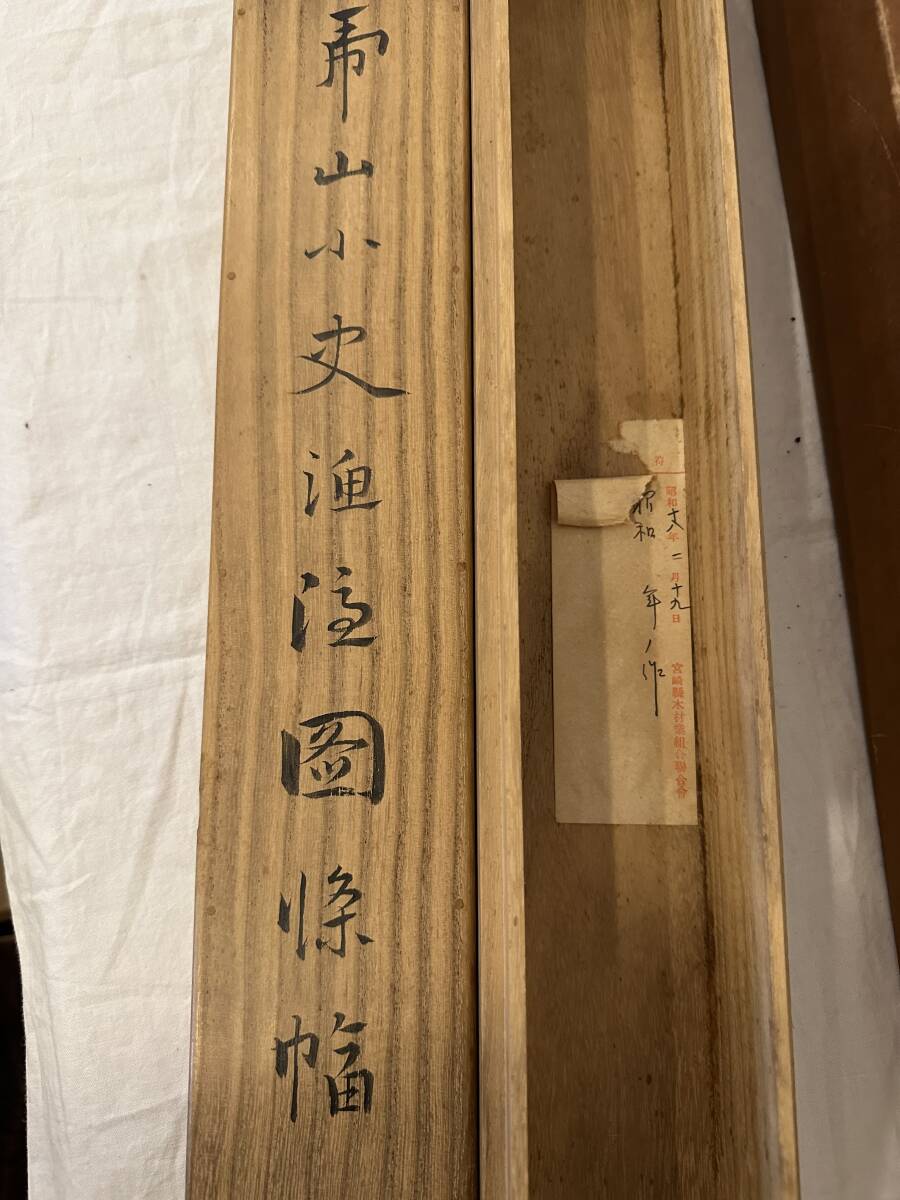 乕山小史漁隱圖條幅
符
昭和十八年二月十九日 宮崎縣木材業組合聯合會
昭和 年ノ作